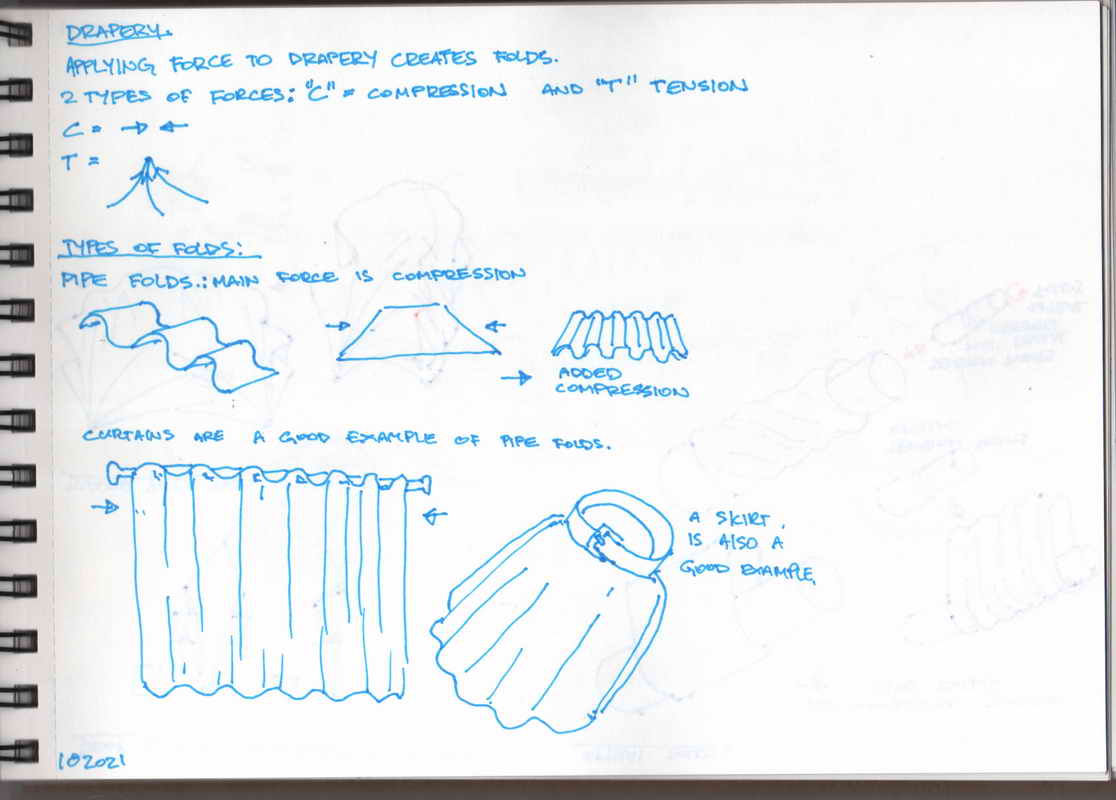 DRAPERY.
APPLYING FORCE TO DRAPERY CREATES FOLDS.
2 TYPES OF FORCES: "C" = COMPRESSION AND "T" TENSION
C = → ←
T =
TYPES OF FOLDS:
PIPE FOLDS.: MAIN FORCE IS COMPRESSION
ADDED
COMPRESSION
CURTAINS ARE A GOOD EXAMPLE OF PIPE FOLDS.
A SKIRT,
IS ALSO A
GOOD EXAMPLE,
102021